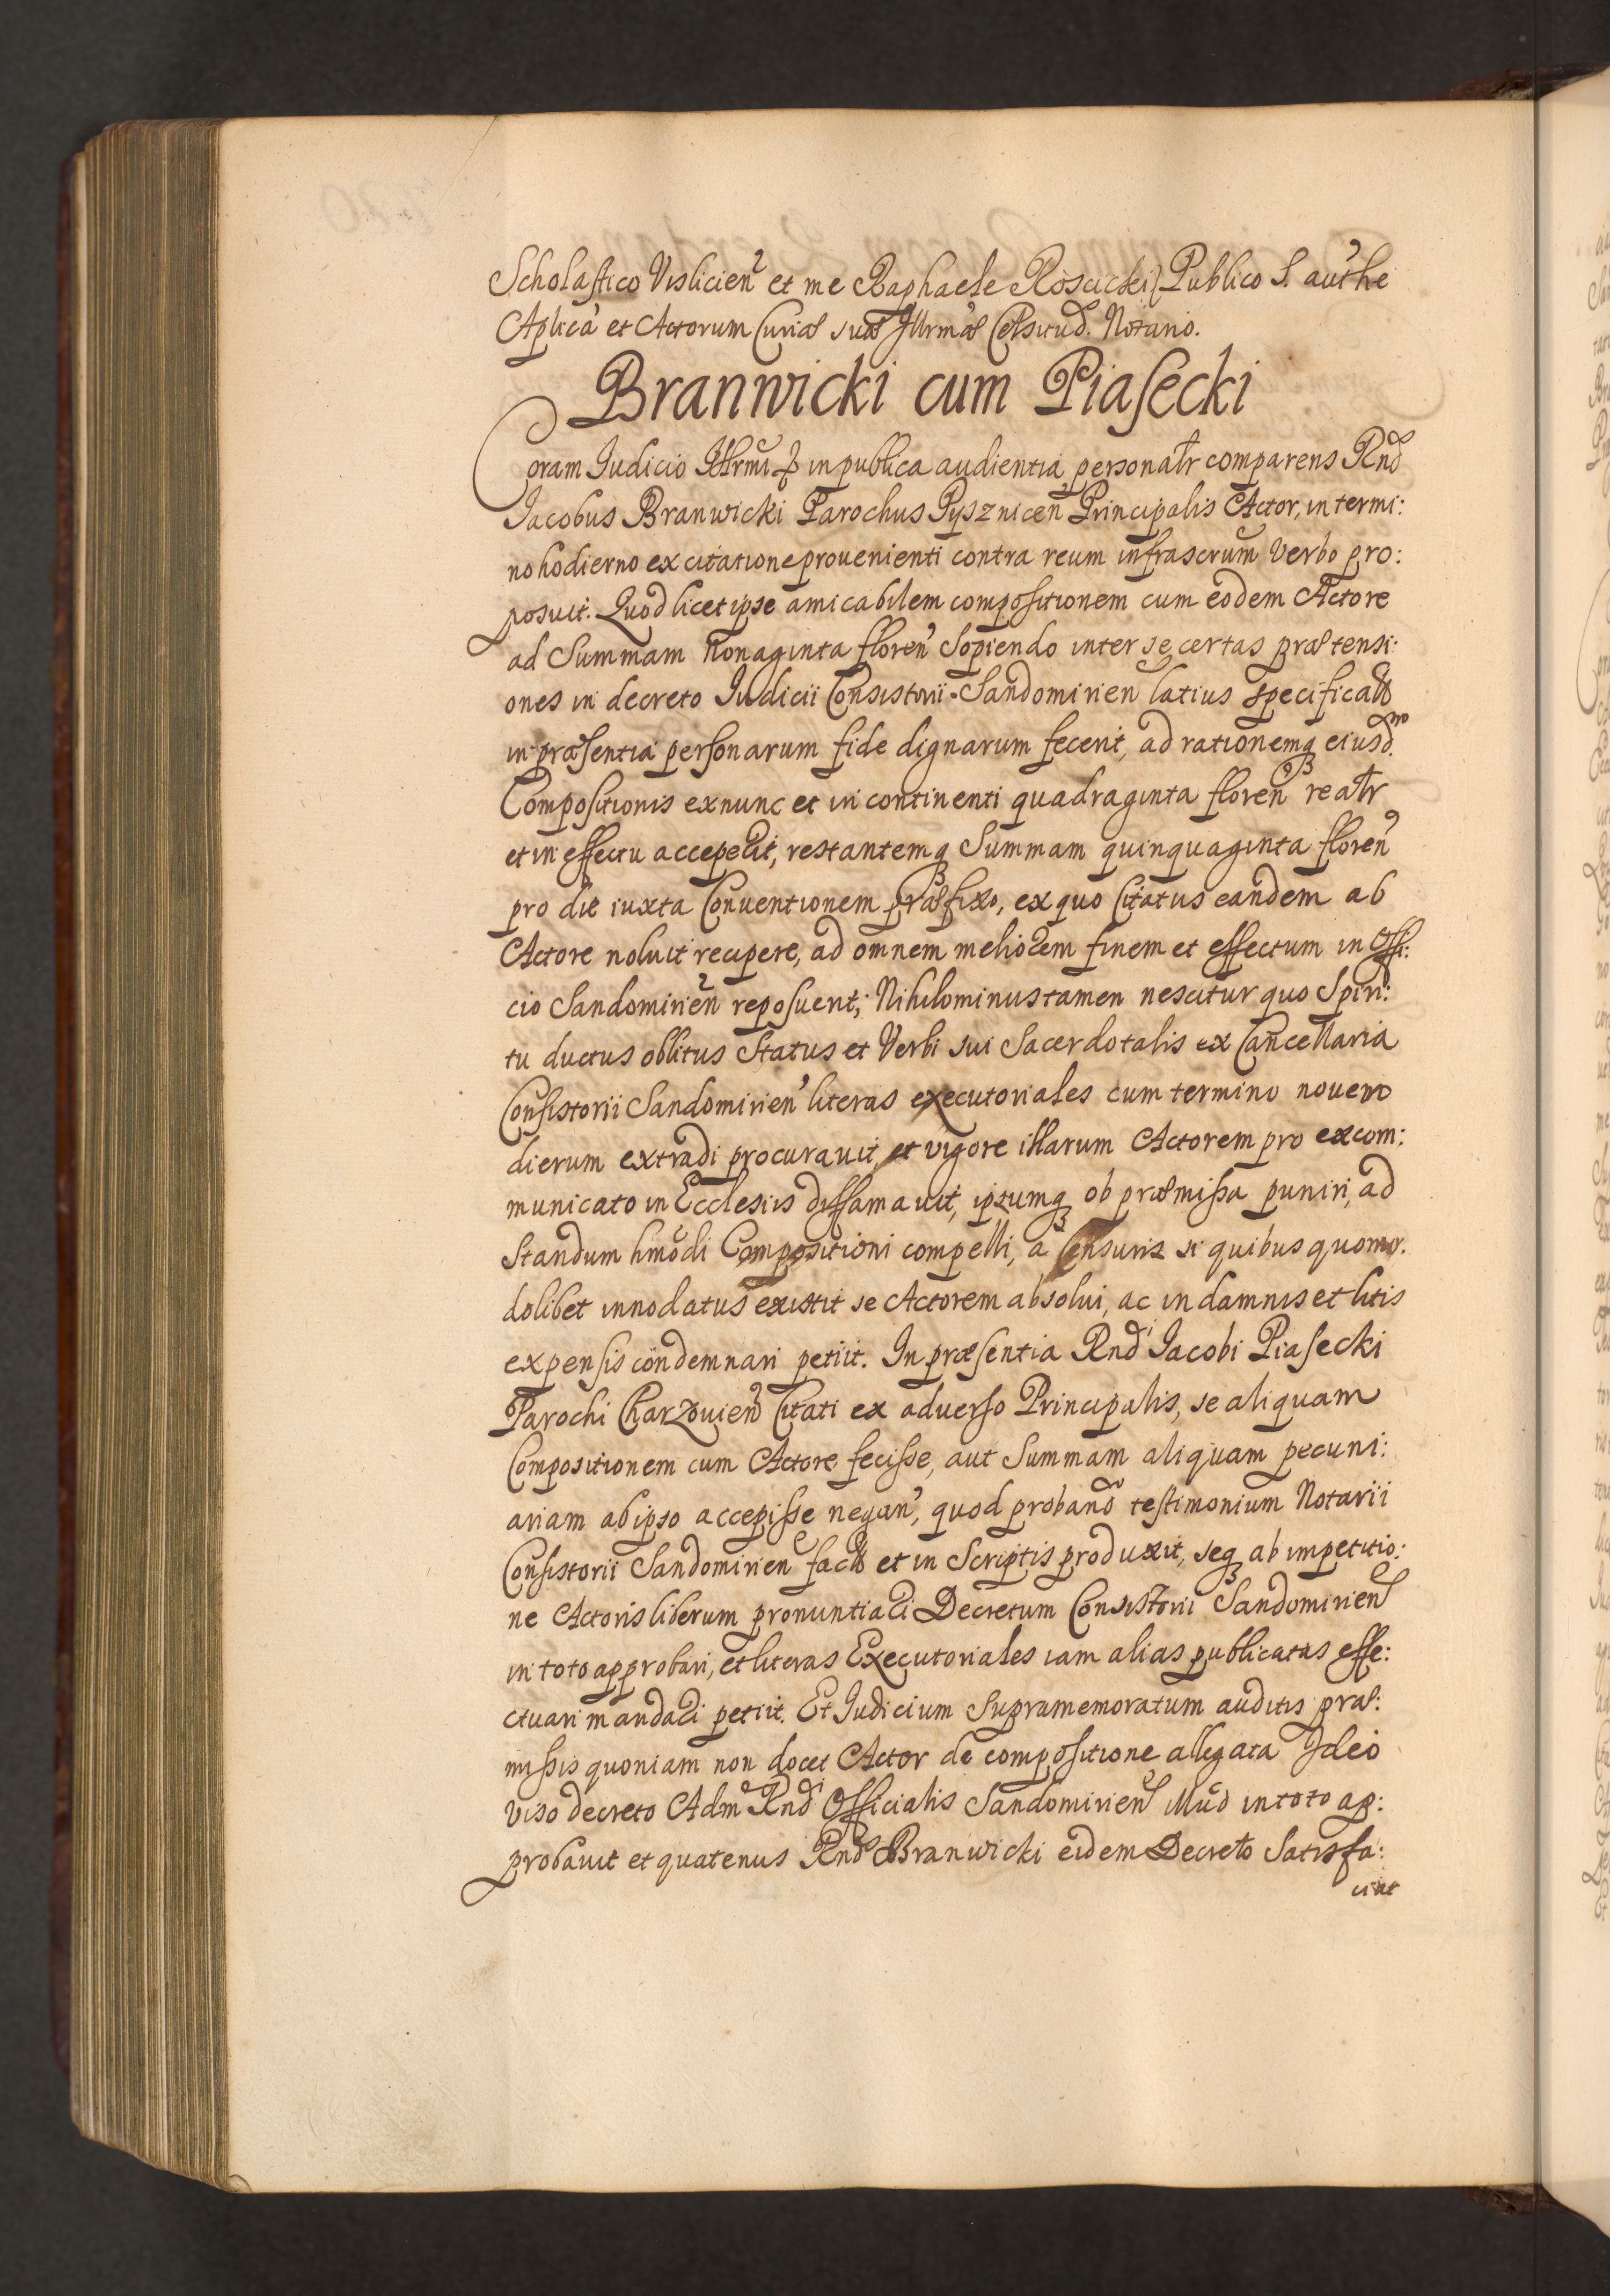 Scholastico Vislicien et me Raphaele Roscicki Publico S. authe
Aplica et Actorum Curiæ suæ Illrmæ Celsitud. Notario.
Branwicki cum Piasecki
Coram Iudicio Illrmi in publica audientia personalr comparens Rnd
Iacobus Branwicki Parochus Pysznicen Principalis Actor, in termi:
no hodierno ex citatione prouenienti contra reum infrascrum Verbo pro:
posuit. Quod licet ipse amicabilem compositionem cum eodem Actore
ad Summam Nonaginta floren Sopiendo inter se certas prætensi:
ones in decreto Iudicii Consistorii Sandomirien latius specificatas
in præsentia personarum fide dignarum fecerit, ad rationemq eiusdmo
Compositionis exnunc et in continenti quadraginta floren realr
et in effectu acceperit, restantemq Summam quinquaginta floren
pro die iuxta Conuentionem præfixo, ex quo Citatus eandem ab
Actore noluit recipere, ad omnem meliorem finem et effectum in Offi:
cio Sandomirien reposuerit; Nihilominus tamen nescitur quo Spiri:
tu ductus oblitus Status et Verbi sui Sacerdotalis ex Cancellaria
Consistorii Sandomirien literas executoriales cum termino novem
dierum extradi procurauit, et vigore illarum Actorem pro excom:
municato in Ecclesiis diffamauit, ipsumq ob præmissa puniri, ad
Standum hmodi Compositioni compelli, a Censuris si quibus quomo.
dolibet innodatus existit se Actorem absolui, ac in damnis et litis
expensis condemnari petiit. In præsentia Rndi Iacobi Piasecki
Parochi Charzouien Citati ex aduerso Principalis, se aliquam
Compositionem cum Actore fecisse, aut Summam aliquam pecuni:
ariam ab ipso accepisse negan, quod proband testimonium Notarii
Consistorii Sandomirien et in Scriptis produxit, seq ab impetitio:
ne Actoris liberum pronuntiari Decretum Consistorii Sandomirien
in toto approbari, et literas Executoriales iam alias publicatas effe:
ctuari mandari petiit. Et Iudicium Supramemoratum auditis præ:
missis quoniam non docet Actor de compositione allegata Ideo
viso decreto Adm Rndi Officialis Sandomirien illud in toto ap:
probauit et quatenus Rnds Branwicki eidem Decreto Satisfa:
ciat